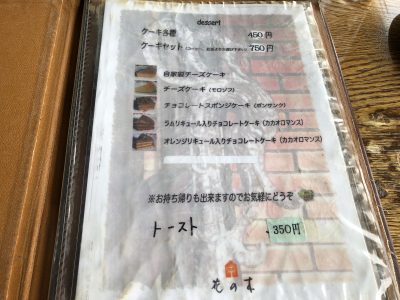 dessert
ケーキ各種 450円
ケーキセット(コーヒー、紅茶よりお選び下さい) 750円
自家製チーズケーキ
チーズケーキ(モロゾフ)
チョコレートスポンジケーキ(ボンサンク)
ラムリキュール入りチョコレートケーキ(カカオロマンス)
オレンジリキュール入りチョコレートケーキ(カカオロマンス)
※お持ち帰りも出来ますのでお気軽にどうぞ
トースト 350円